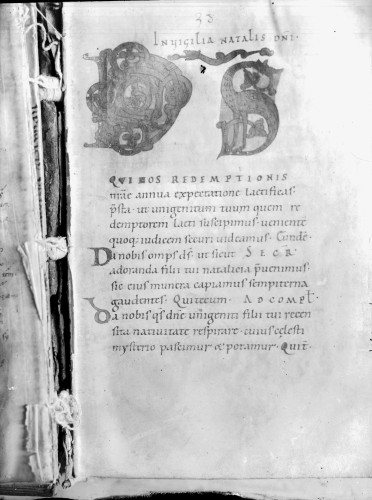 33
IN VIGILIA NATALIS DNI·
DS
QUI NOS REDEMPTIONIS
nr̄ae annua expectatione laetificas·
p̄sta· ut unigenitum tuum quem re
demptorem laeti suscipimus· veniente
quoq; iudicem securi videamus·
Da nobis omp̄s d̄s· ut sicut SECR̄
adoranda filii tui natalicia p̄venimus·
sic eius munera capiamus sempiterna
gaudentes· Qui tecum· AD COMPL̄·
Da nobis q̄s dn̄e unigeniti filii tui recen
sita nativitate respirare· cuius cęlesti
mysterio pascimur & potamur· Qui t̄·